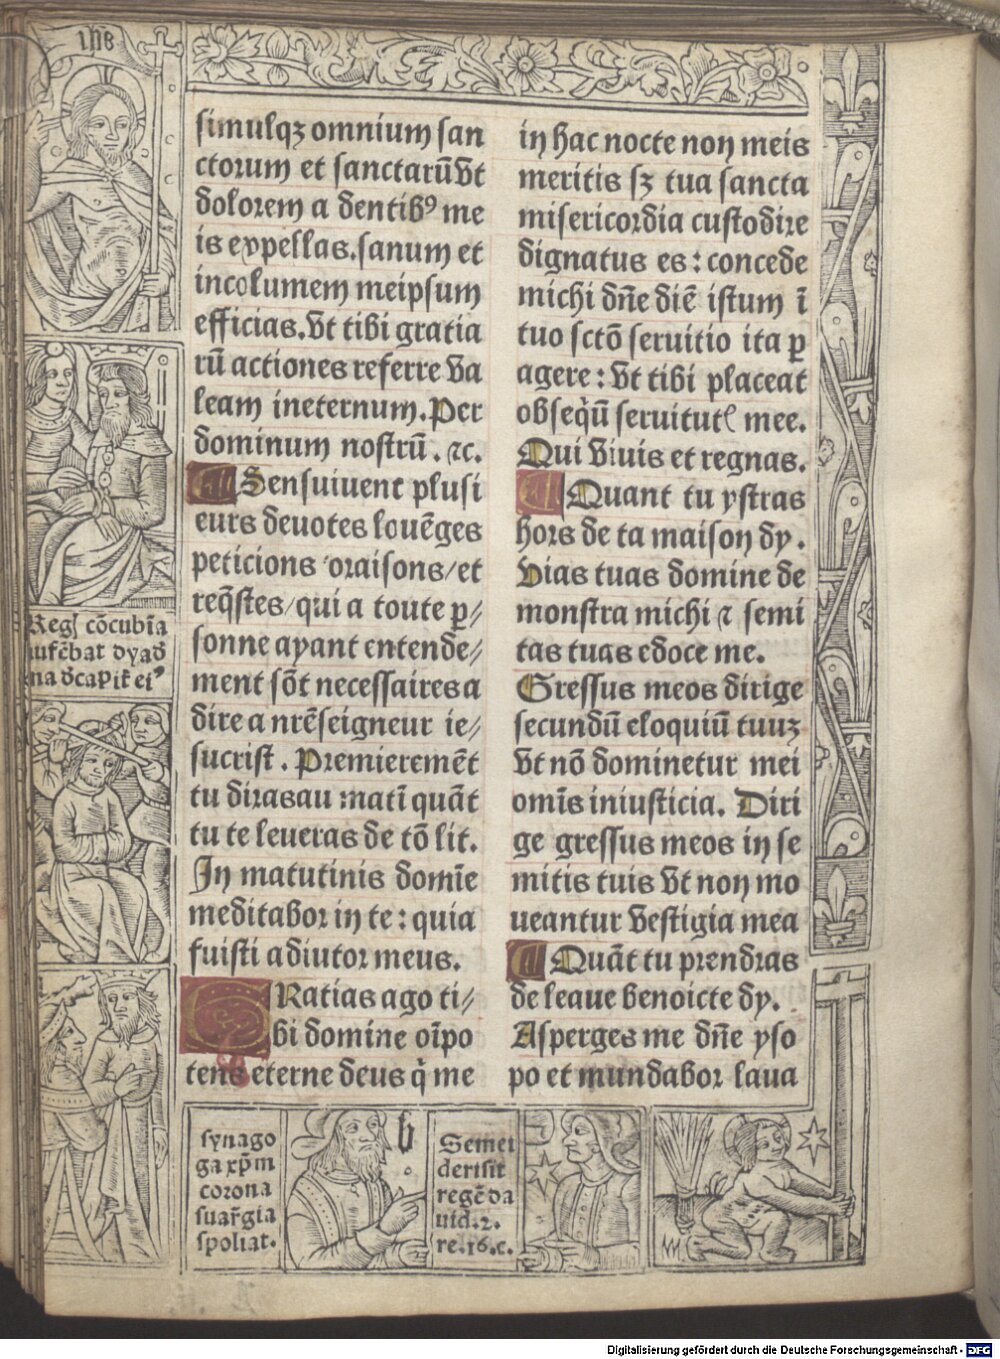 118
simulqꝫ omnium san
ctorum et sanctarū vt
dolorem a dentibꝰ me
is expellas. sanum et
incolumem meipsum
efficias. vt tibi gratia
rū actiones referre va
leam ineternum. Per
dominum nostrū. ⁊c.
Sensuiuent plusi
eurs deuotes louēges
peticions / oraisons / et
reqᷓstes / qui a toute ꝑ⸗
sonne ayant entende⸗
ment sōt necessaires a
dire a nr̄e seigneur ie⸗
sucrist. Premieremēt
tu diras au matī quāt
tu te leueras de tō lit.
In matutinis domīe
meditabor in te: quia
fuisti adiutor meus.
GRatias ago ti⸗
bi domine oīpo
tens eterne deus q̇ me
in hac nocte non meis
meritis sꝫ tua sancta
misericordia custodire
dignatus es: concede
michi dn̄e diē istum ī
tuo sctō seruitio ita ꝑ
agere: vt tibi placeat
obseq̇ū seruitutꝭ mee.
Qui viuis et regnas.
Quant tu ystras
hors de ta maison dy.
Vias tuas domine de
monstra michi ⁊ semi
tas tuas edoce me.
Gressus meos dirige
secundū eloquiū tuuꝫ
vt nō dominetur mei
omīs iniusticia. Diri
ge gressus meos in se
mitis tuis vt non mo
ueantur vestigia mea
Quāt tu prendras
de leaue benoicte dy.
Asperges me dn̄e yso
po et mundabor laua
Regꝭ cōcubīa
aufēbat dyad
ma d̄ capit̄ eiꝰ
synago
ga xp̄m
corona
sua r̄gia
spoliat.
b
Semei
derisit
regē da
uid. 2.
re. 16. c.
Digitalisierung gefördert durch die Deutsche Forschungsgemeinschaft - DFG